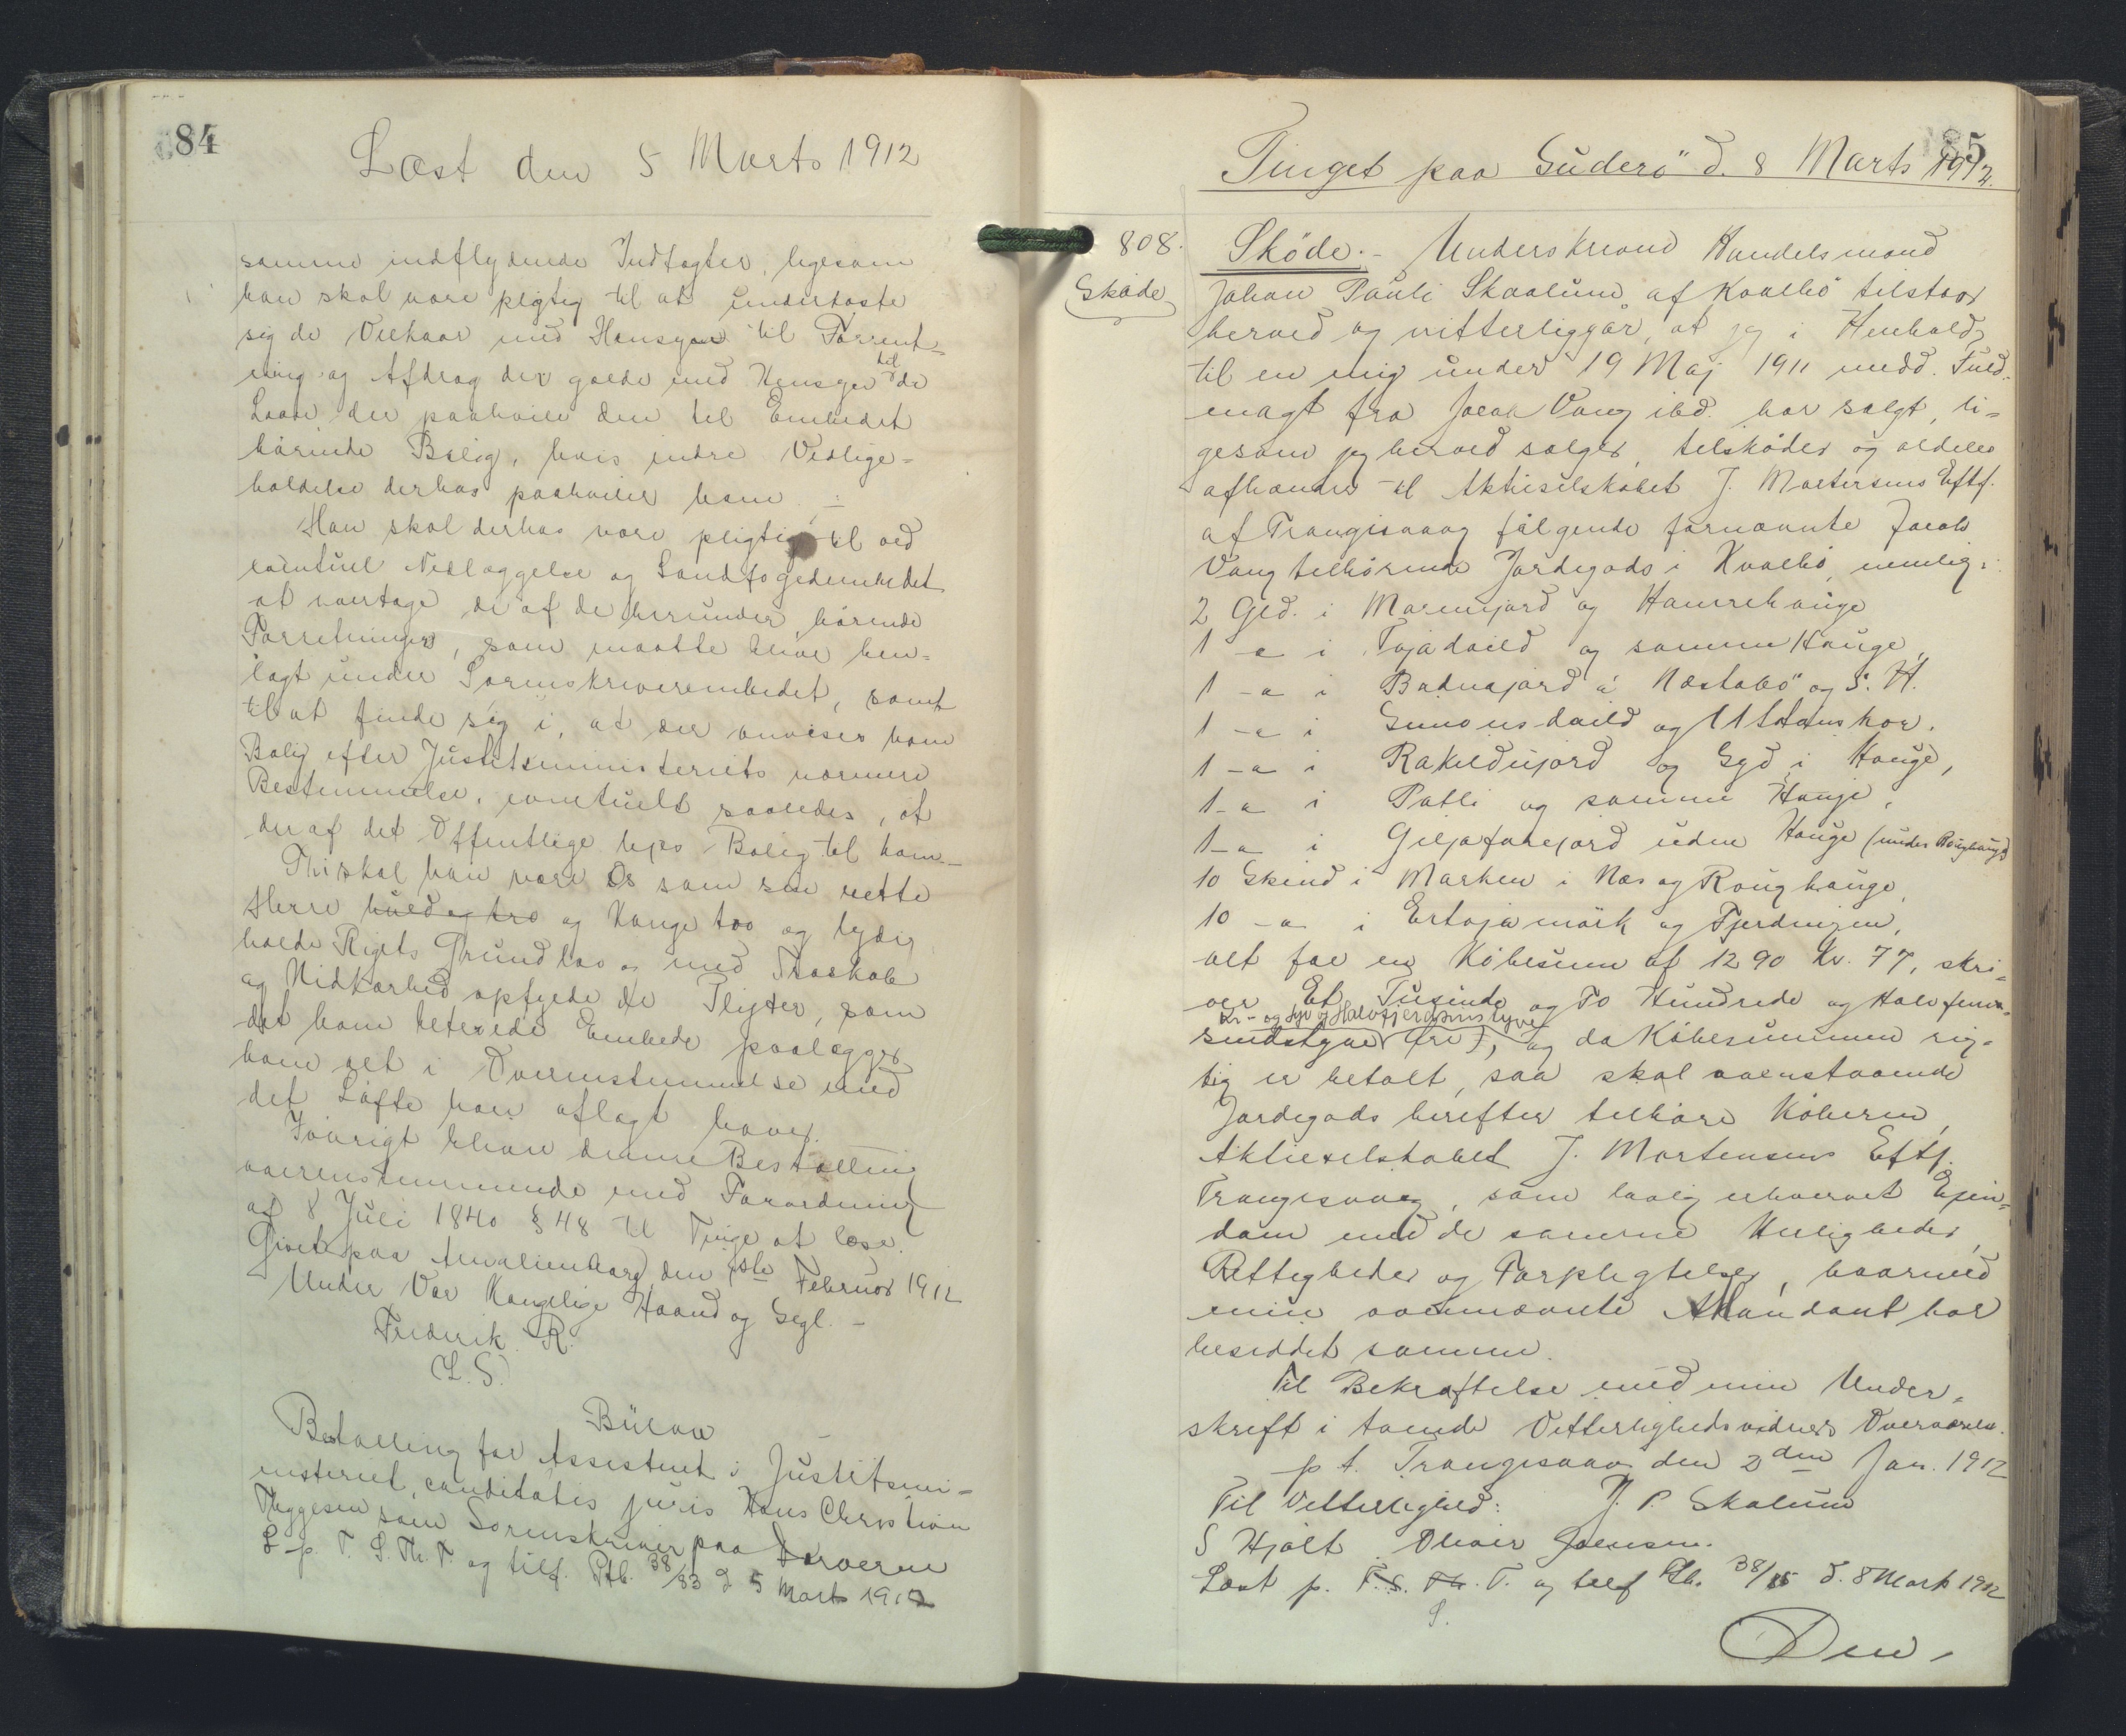 84
Læst den 5 Marts 1912
samme indflydende Indtægter, ligesom
han skal være pligtig til at underkaste
sig de Vilkaar med Hensyn til Forrent=
ning og Afdrag der gælde med Hensyn til de
Laan, der paahvile den til Embedet
hørende Bolig, hvis indre Vedlige=
holdelse derhos paahviler ham. -
Han skal derhos være pligtig til ved
eventuel Nedlæggelse og Landfogedembedet
at overtage de af de herunder hørende
Forretninger, som maatte blive hen=
lagt under Sorenskriverembedet, samt
til at finde sig i, at der anvises ham
Bolig efter Justitsministeriets nærmere
Bestemmelse, eventuelt saaledes, at
der af det Offentlige lejes Bolig til ham. -
Thi skal han være Os som sin rette
Herre huld og tro og Konge tro og lydig
holde Rigets Grundlov og med Troskab
og Nidkærhed opfylde de Pligter, som
det ham betroede Embede paalægger
ham alt i Overensstemmelse med
det Løfte han aflagt haver.
Iøvrigt bliver denne Bestalling
overensstemmende med Forordning
af 8 Juli 1840 § 48 til Tinge at læse.
Givet paa Amalienborg, den 1ste Februar 1912
Under Vor Kongelige Haand og Segl. -
Frederik R.
(L. S.)
Bülow
Bestalling for Assistent i Justitsmi=
nisteriet, canditatis juris Hans Christian
Thyggesen som Sorenskriver paa Færøerne
L. p. T. S. Th. T. og tilf. Ptb. 38/83 d 5 Marts 1912
85
Tinget paa Suderø d. 8 Marts 1912.
808.
Skøde
Skøde. - Underskrevne Handelsmand
Johan Pauli Skaalum af Kvalbø tilstaar
herved og vitterliggør, at jeg i Henhold
til en mig under 19 Maj 1911 medd. Fuld=
magt fra Jacob Vang ibd. har solgt, li=
gesom jeg herved sælger, tilskøder og aldeles
afhænder til Aktieselskabet J. Mortensens Eftf.
af Trangisvaag følgende fornævnte Jacob
Vang tilhørende Jordegods i Kvalbø, nemlig:
2 Gld. i Marnujord og Hamrehauge
1 - a i Tojadeild og samme Hauge,
1 - a i Badnajord á Næstabø og S. H.
1 - a i Simonsdeild og Uttanskor.
1 - a i Rakeldujord og Syd i Hauge,
1 - a i Patli og samme Hauge,
1 - a i Giljafarejord uden Hauge (under Rønghauge)
10 Skind i Marken i Nes og Rønghauge,
10 - a i Ertoja mörk og Fjerdingen,
alt for en Købesum af 1290 Kr. 77, skri=
ver Et Tusinde og To Hundrede og Halvfem=
Kr. og Syv og Halvfjerdsindstyve
sindstyve Øre), og da Købesummen rig=
tig er betalt, saa skal ovenstaaende
Jordegods herefter tilhøre Køberen,
Aktieselskabet J. Mortensens Eftf.
Trangisvaag, som lovlig erhvervet Ejen=
dom med de samme Herligheder,
Rettigheder og Forpligtelser, hvormed
min ovennævnte Mandant har
besiddet samme.
Til Bekræftelse med min Under=
skrift i tvende Vitterlighedsvidners Overværelse.
p. t. Trangisvaag den 2den Jan. 1912
Til Vitterlighed: J. P. Skalum
S Hjalt. Oliver Joensen.
Læst p. T. S. Th. T. og tilf Ptb. 38/85 d. 8 Marts 1912
S.
Den